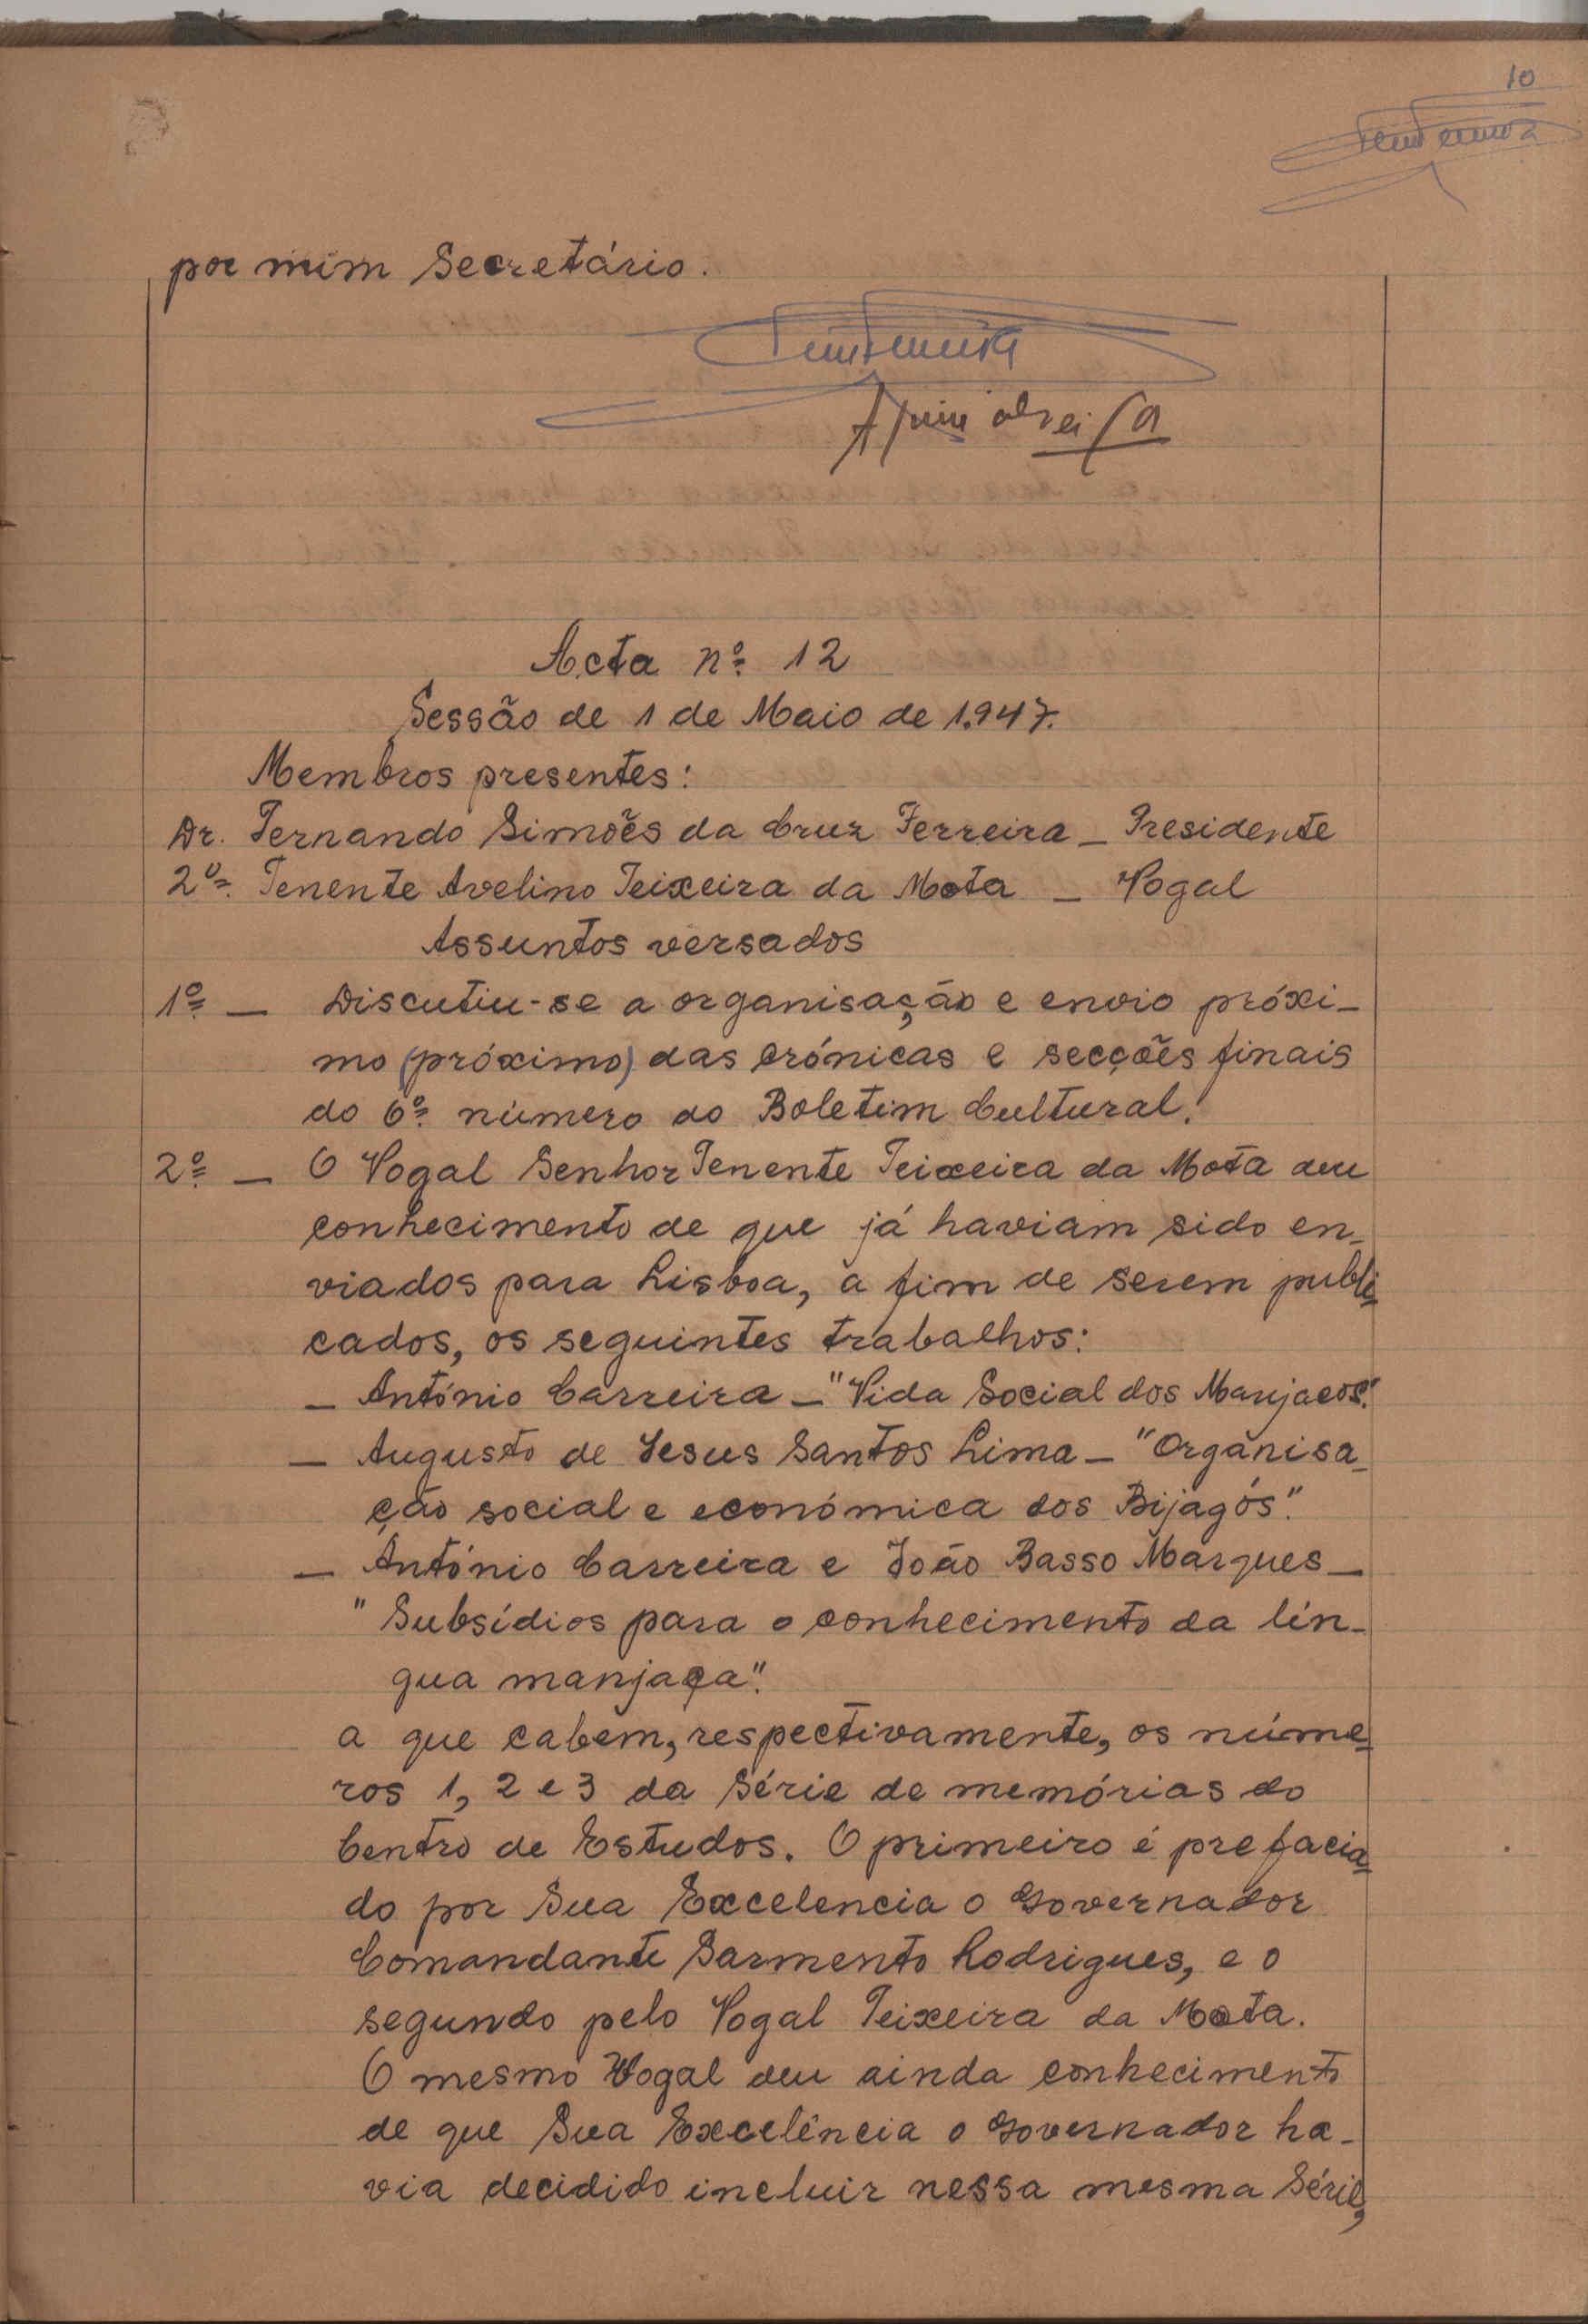 10
por mim Secretário.
Acta nº 12
Sessão de 1 de Maio de 1.947.
Membros presentes:
Dr. Fernando Simões da Cruz Ferreira _ Presidente
2º. Tenente Avelino Teixeira da Mota _ Vogal
Assuntos versados
1º _ Discutiu-se a organisação e envio próxi-
mo (próximo) das crónicas e secções finais
do 6º número do Boletim Cultural.
2º _ O Vogal Senhor Tenente Teixeira da Mota deu
conhecimento de que já haviam sido en-
viados para Lisboa, a fim de serem publi-
cados, os seguintes trabalhos:
_ António Carreira _ "Vida Social dos Manjacos".
_ Augusto de Jesus Santos Lima _ "Organisa-
ção social e económica dos Bijagós".
_ António Carreira e João Basso Marques _
"Subsídios para o conhecimento da lín-
gua manjaca".
a que cabem, respectivamente, os núme-
ros 1, 2 e 3 da Série de memórias do
Centro de Estudos. O primeiro é prefacia-
do por Sua Excelencia o Governador
Comandante Sarmento Rodrigues, e o
segundo pelo Vogal Teixeira da Mota.
O mesmo Vogal deu ainda conhecimento
de que Sua Excelência o Governador ha-
via decidido incluir nessa mesma Série,